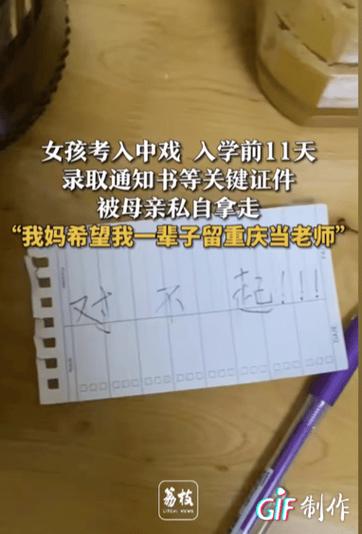 女孩考入中戏 入学前11天
录取通知书等关键证件
被母亲私自拿走
“我妈希望我一辈子留重庆当老师”
对不起!!!
荔枝
LITCHI NEWS
GIF制作